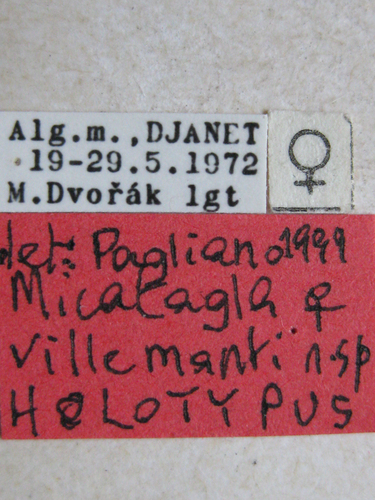 Alg.m.,DJANET
19-29.5.1972
M.Dvořák lgt
♀
det: Pagliano 1999
Micatagla ♀
villemanti n.sp
HOLOTYPUS